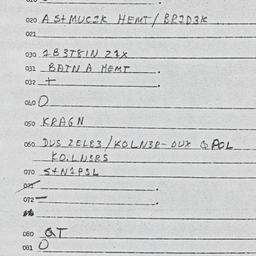 020 A S+MUC2K HEMT/BR2D3K
021
030 2B3T8IN 21X
031 BATN A HEMT
032 +
040 O
050 KRAGN
060 DUS ZELE3/KOLN3R-DUX & POL
KO.LN3RS
070 S+N1P3L
071
072 -
080 QT
081 O